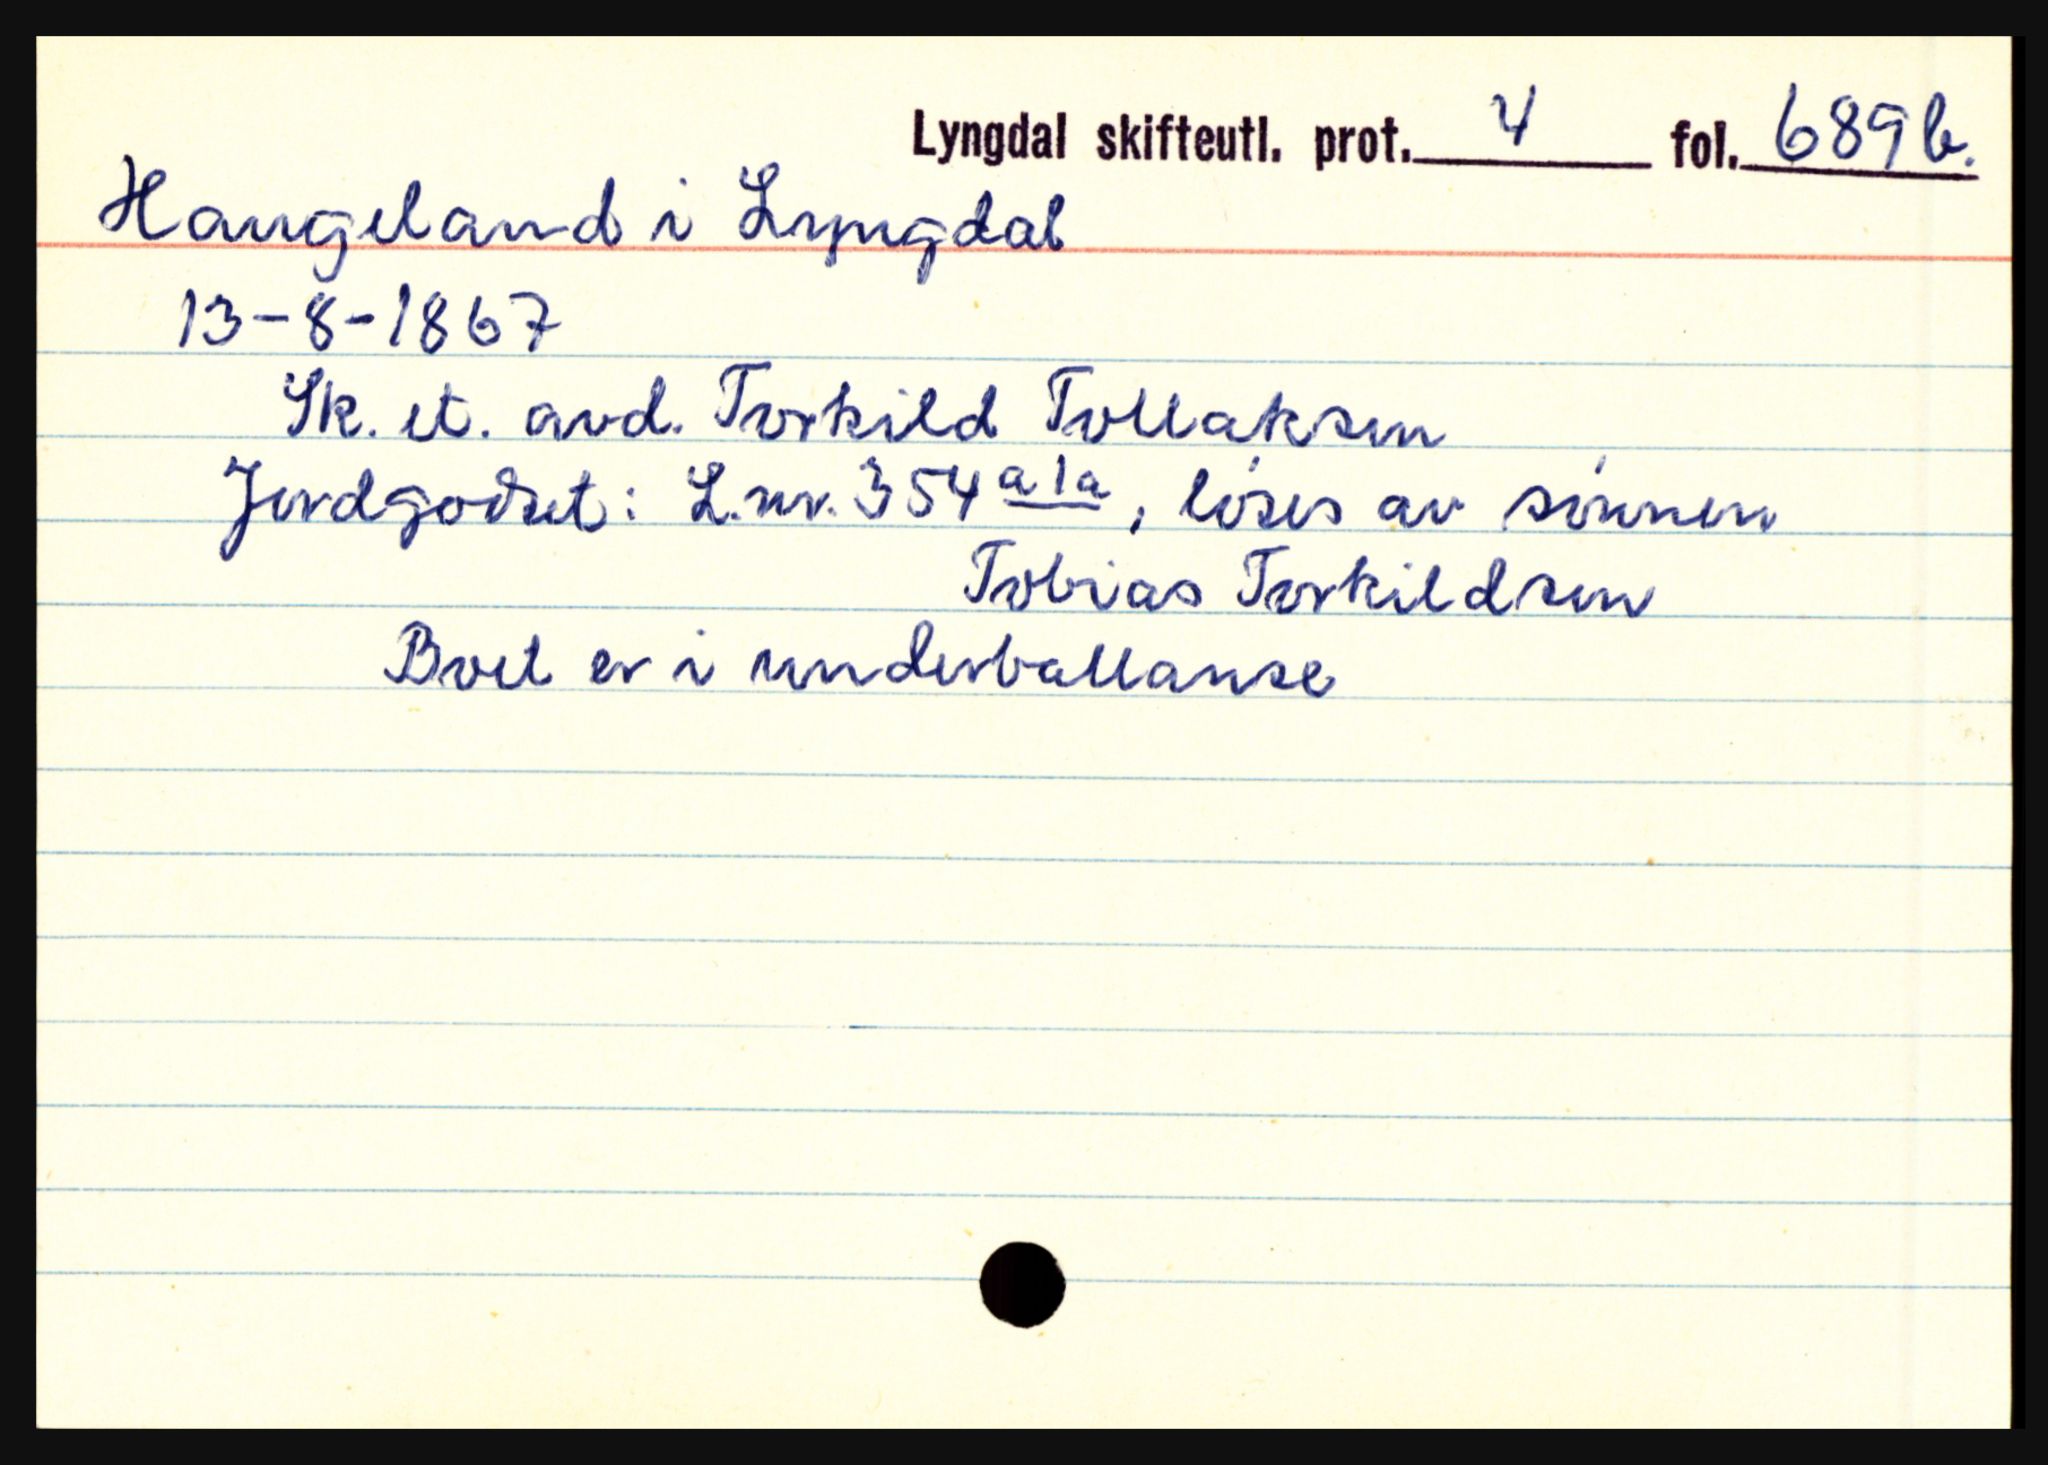 Lyngdal skifteutl. prot. 4 fol. 689b.
Haugeland i Lyngdal
13-8-1867
Sk. et. avd. Torkild Tollaksen
Jordgodset: L.nr. 354 a1a, löses av sönnen
Tobias Torkildsen
Boet er i underballanse